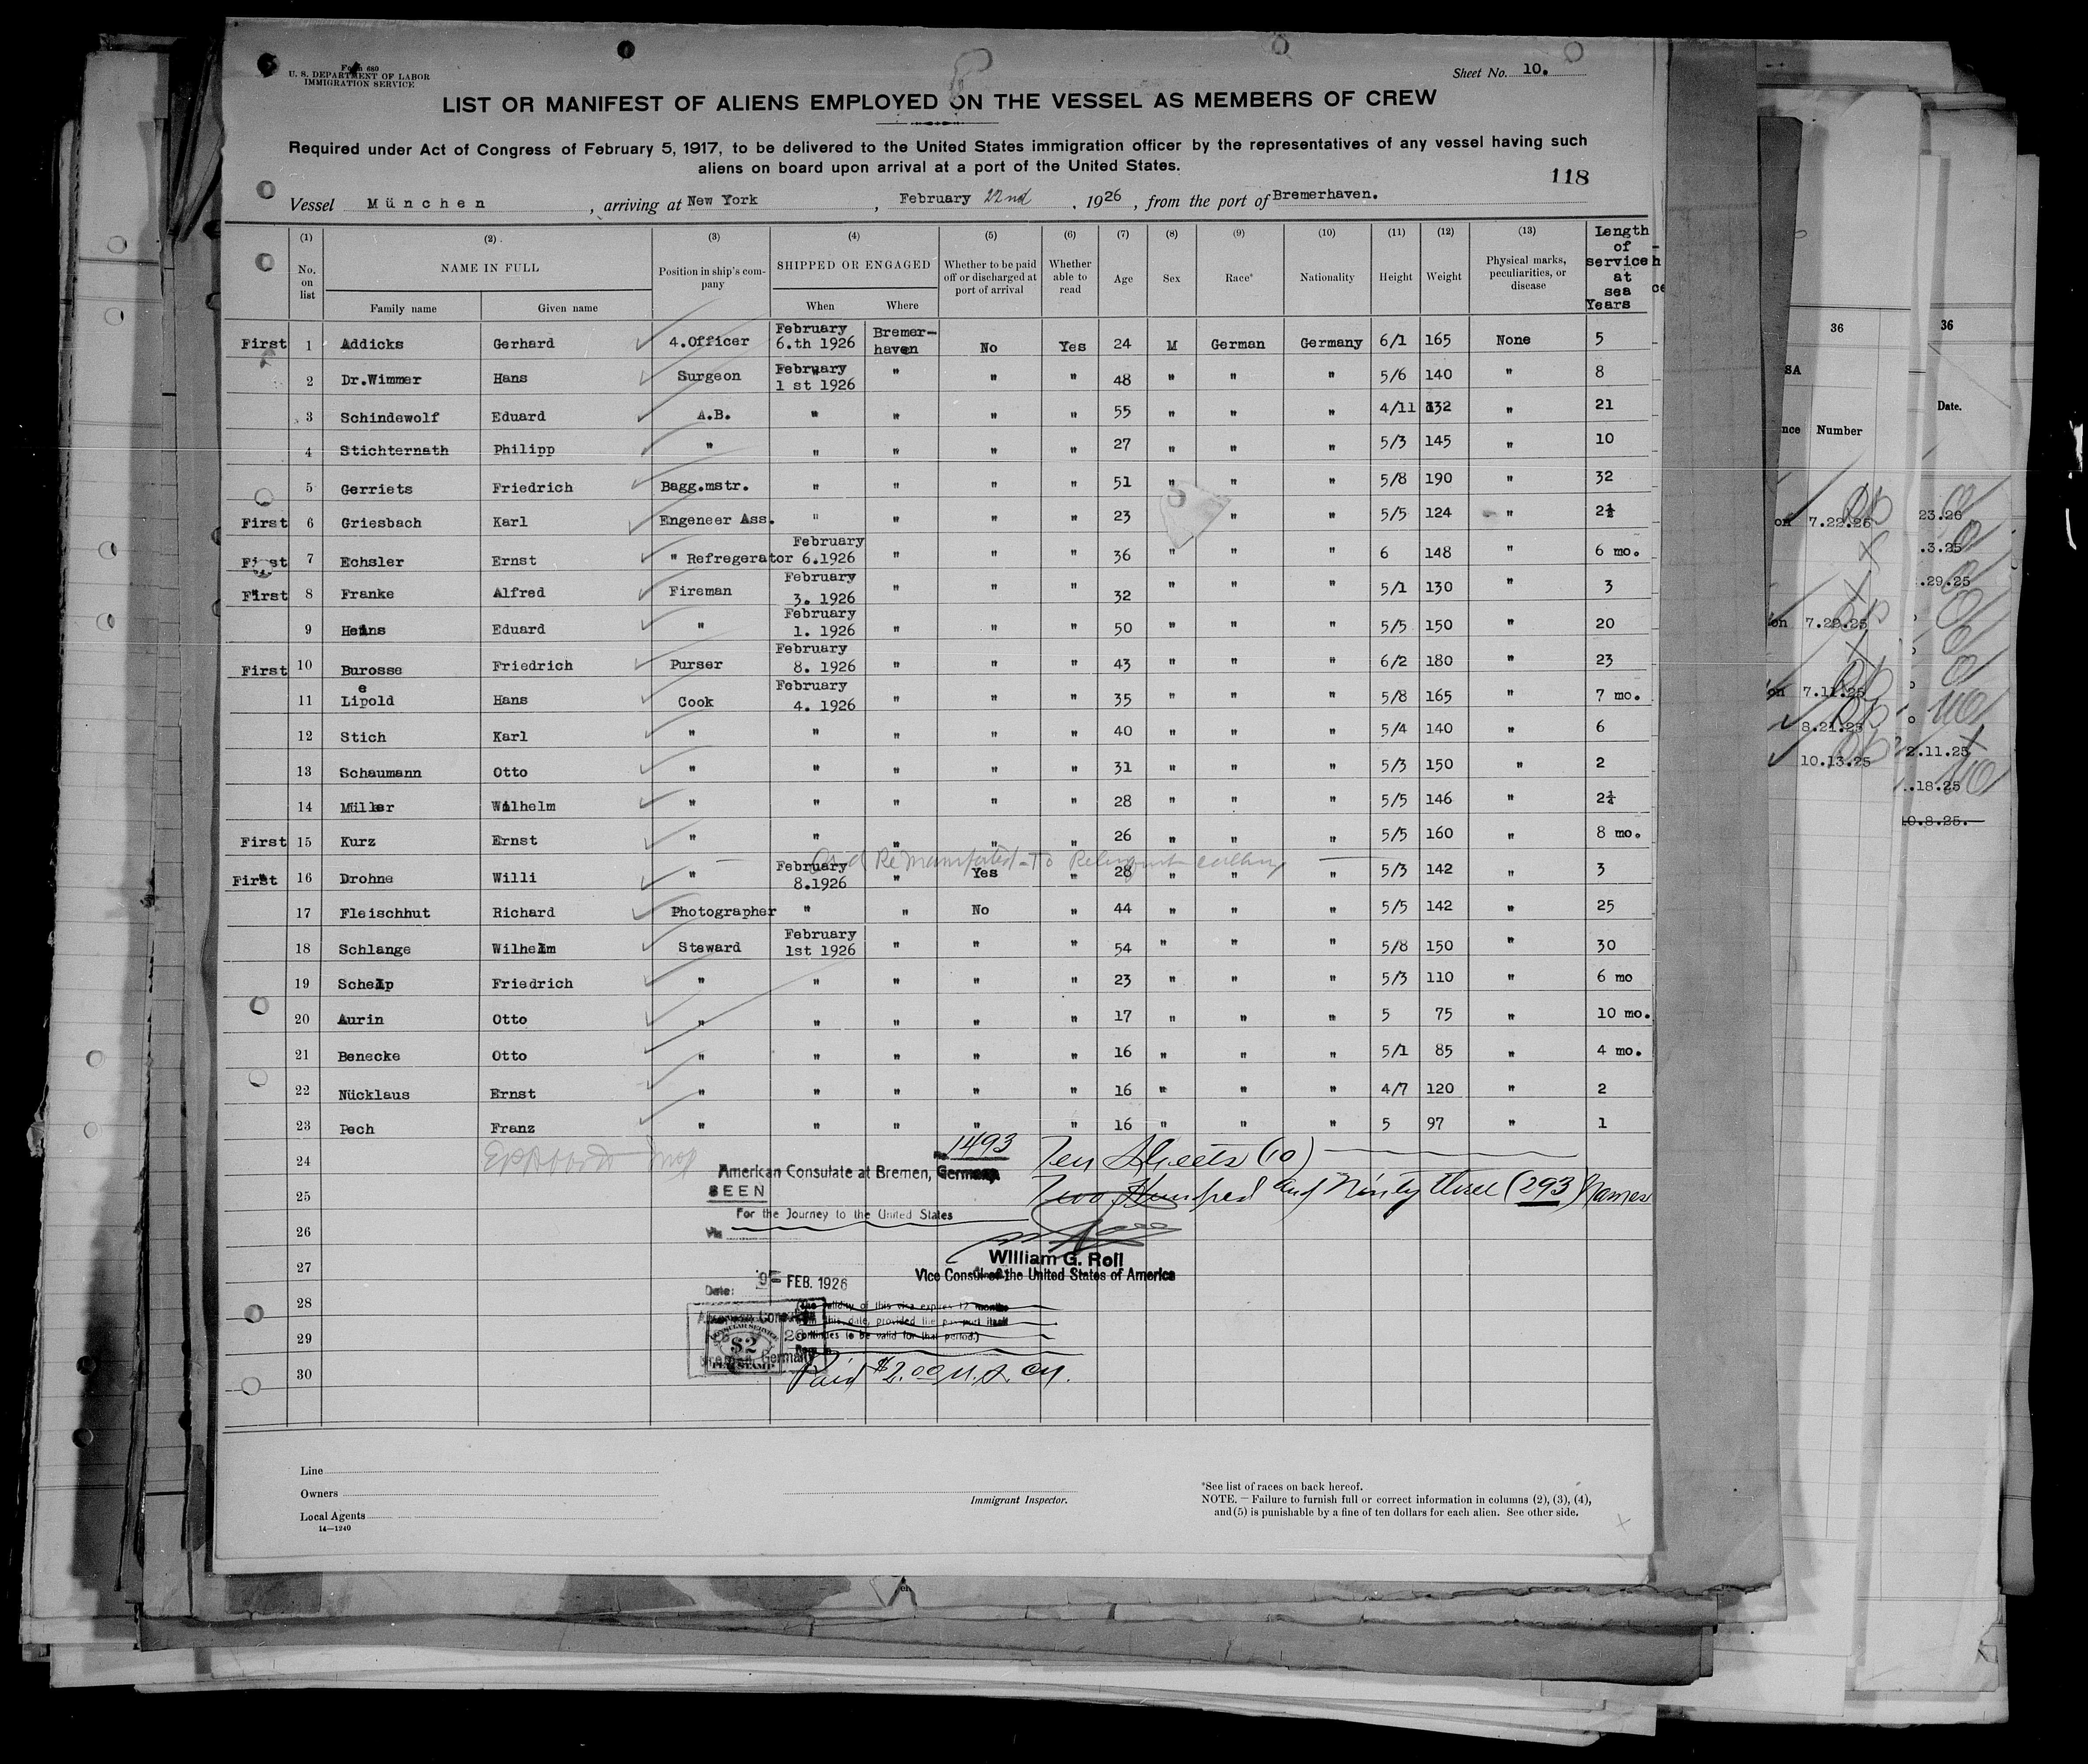 Form 680
U. S. DEPARTMENT OF LABOR
IMMIGRATION SERVICE
Sheet No. 10.
LIST OR MANIFEST OF ALIENS EMPLOYED ON THE VESSEL AS MEMBERS OF CREW
Required under Act of Congress of February 5, 1917, to be delivered to the United States immigration officer by the representatives of any vessel having such
aliens on board upon arrival at a port of the United States.
118
Vessel München , arriving at New York , February 22nd , 1926 , from the port of Bremerhaven.
(1) (2) (3) (4) (5) (6) (7) (8) (9) (10) (11) (12) (13)
No. on list NAME IN FULL Family name Given name Position in ship's company SHIPPED OR ENGAGED When Where Whether to be paid off or discharged at port of arrival Whether able to read Age Sex Race* Nationality Height Weight Physical marks, peculiarities, or disease Length of service at sea Years
First 1 Addicks Gerhard 4.Officer February 6.th 1926 Bremerhaven No Yes 24 M German Germany 6/1 165 None 5
2 Dr.Wimmer Hans Surgeon February 1 st 1926 " " " 48 " " " 5/6 140 " 8
3 Schindewolf Eduard A.B. " " " " 55 " " " 4/11 132 " 21
4 Stichternath Philipp " " " " " 27 " " " 5/3 145 " 10
5 Gerriets Friedrich Bagg.mstr. " " " " 51 " " " 5/8 190 " 32
First 6 Griesbach Karl Engeneer Ass. " " " " 23 " " 5/5 124 " 2½
First 7 Echsler Ernst " Refregerator February 6.1926 " " " 36 " " " 6 148 " 6 mo.
First 8 Franke Alfred Fireman February 3. 1926 " " " 32 " " " 5/1 130 " 3
9 Heins Eduard " February 1. 1926 " " " 50 " " " 5/5 150 " 20
First 10 Burosse Friedrich Purser February 8. 1926 " " " 43 " " " 6/2 180 " 23
e
11 Lipold Hans Cook February 4. 1926 " " " 35 " " " 5/8 165 " 7 mo.
12 Stich Karl " " " " " 40 " " " 5/4 140 " 6
13 Schaumann Otto " " " " " 31 " " " 5/3 150 " 2
14 Müller Wilhelm " " " " " 28 " " " 5/5 146 " 2¼
First 15 Kurz Ernst " " " " " 26 " " " 5/5 160 " 8 mo.
Remanifested - To Relinquish calling
First 16 Drohne Willi " February 8.1926 " Yes " 28 " " " 5/3 142 " 3
17 Fleischhut Richard Photographer " " No " 44 " " " 5/5 142 " 25
18 Schlange Wilhelm Steward February 1st 1926 " " " 54 " " " 5/8 150 " 30
19 Schelp Friedrich " " " " " 23 " " " 5/3 110 " 6 mo
20 Aurin Otto " " " " " 17 " " " 5 75 " 10 mo.
21 Benecke Otto " " " " " 16 " " " 5/1 85 " 4 mo.
22 Nücklaus Ernst " " " " " 16 " " " 4/7 120 " 2
23 Pech Franz " " " " " 16 " " " 5 97 " 1
24
25
26
27
28
29
30
No. 1493
Ten Sheets (10)
American Consulate at Bremen, Germany
SEEN
Two Hundred and Ninty three (293) Names
For the Journey to the United States
Via
William G. Roll
Vice Consul of the United States of America
Date: 9 FEB. 1926
(The validity of this visa expires 12 months
from this date, provided the passport itself
continues to be valid for that period.)
American Consulate
Bremen, Germany
CONSULAR SERVICE
$2
FEE STAMP
Paid $2.00 U.S. Cy.
Line
Owners
Local Agents
14—1240
Immigrant Inspector.
*See list of races on back hereof.
NOTE.—Failure to furnish full or correct information in columns (2), (3), (4),
and (5) is punishable by a fine of ten dollars for each alien. See other side.
36 36
SA
Date.
nce Number
on 7.22.26 23.26
.3.25
.29.25
on 7.22.25
on 7.11.25
8.21.25
2.11.25
10.13.25
.18.25
10.8.25.